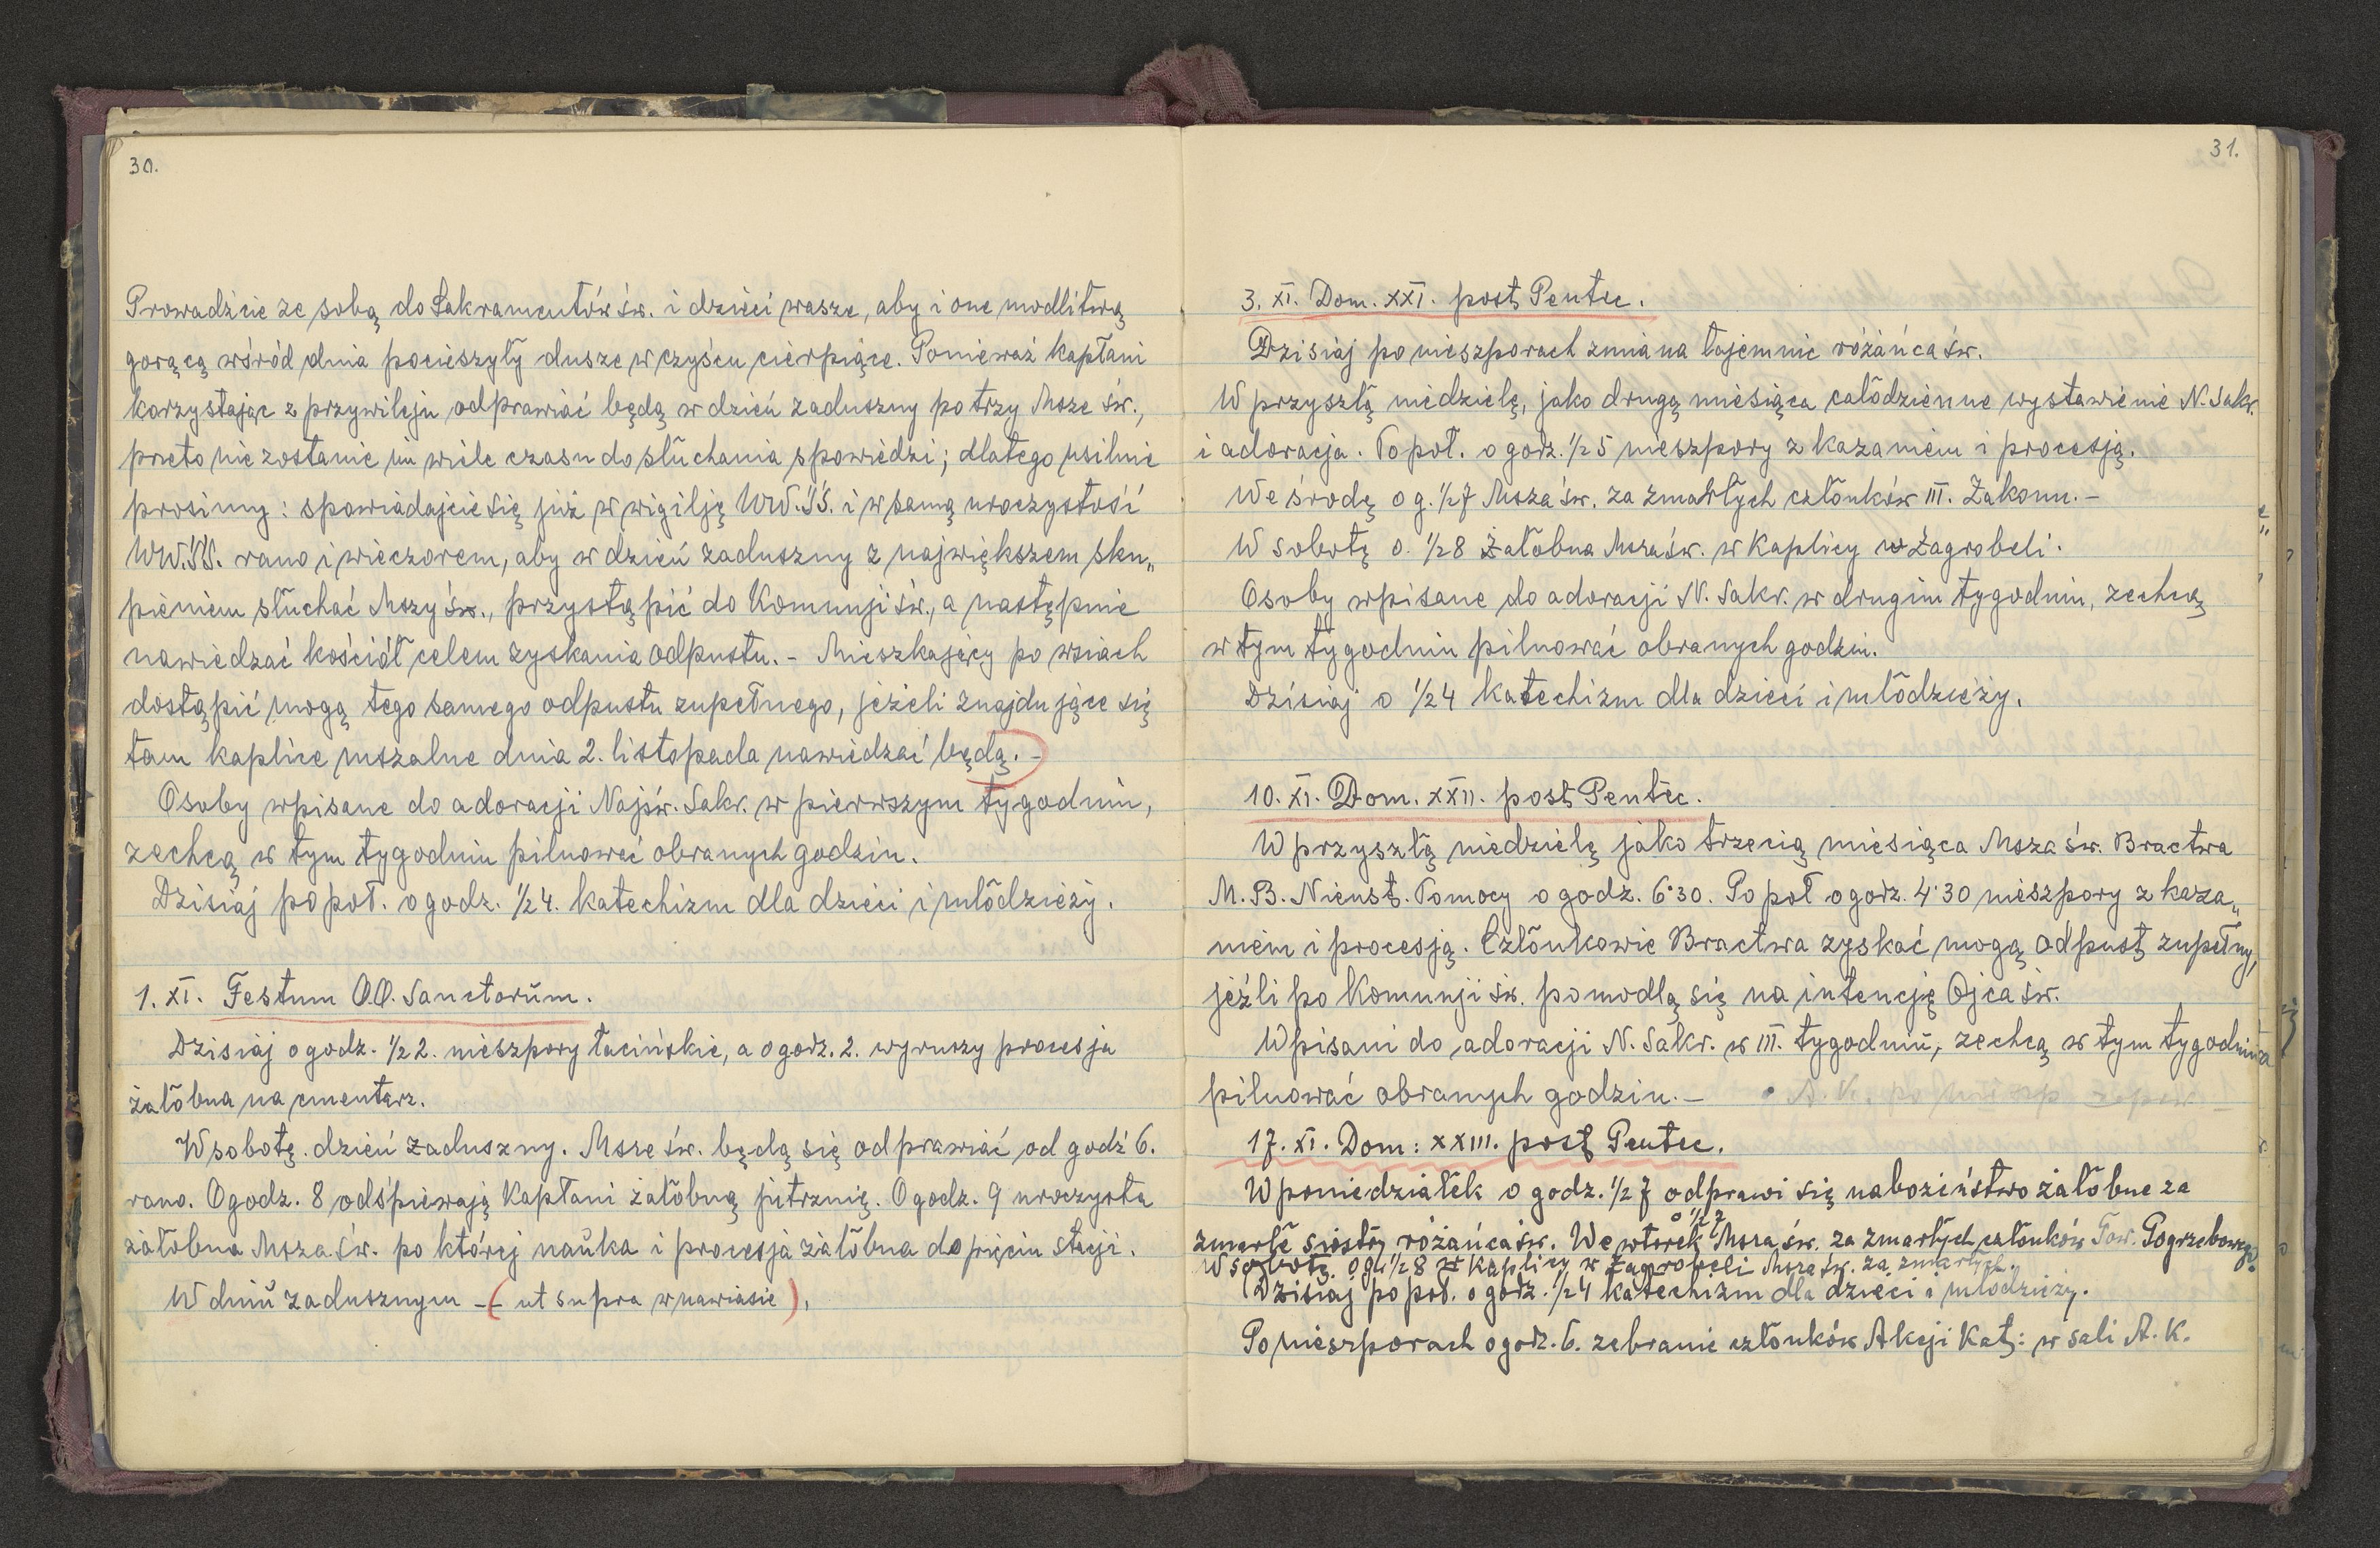 30.
Prowadźcie ze sobą do Sakramentów św. i dzieci wasze, aby i one modlitwą
gorącą wśród dnia pocieszyły dusze w czyśću cierpiące. Ponieważ kapłani
korzystając z przywileju odprawiać będą w dzień zaduszny po trzy Msze św.,
przeto nie zostanie im wiele czasu do słuchania spowiedzi; dlatego usilnie
prosimy: spowiadajcie się już w wigilję WW.ŚŚ. i w samą uroczystość
WW.ŚŚ. rano i wieczorem, aby w dzień zaduszny z największem sku„
pieniem słuchać Mszy św., przystąpić do Komunji św., a następnie
nawiedzać kościół celem zyskania odpustu. - Mieszkający po wsiach
dostąpić mogą tego samego odpustu zupełnego, jeżeli znajdujące się
tam kaplice mszalne dnia 2. listopada nawiedzać będą. -
Osoby wpisane do adoracji Najśw. Sakr. w pierwszym tygodniu,
zechcą w tym tygodniu pilnować obranych godzin.
Dzisiaj popoł. o godz. 1/2 4. katechizm dla dzieci i młodzieży.
1. XI. Festum O.O. Sanctorum.
Dzisiaj o godz. 1/2 2. nieszpory łacińskie, a o godz. 2. wyruszy procesja
żałobna na cmentarz.
W sobotę dzień zaduszny. Msze św. będą się odprawiać od godź 6.
rano. O godz. 8 odśpiewają Kapłani żałobną jutrznię. O godz. 9 uroczysta
żałobna Msza św. po której nauka i procesja żałobna do pięciu stacji.
W dniu zadusznym - (ut supra w nawiasie).
31.
3. XI. Dom. XXI. post Pentec.
Dzisiaj po nieszporach zmiana tajemnic różańca św.
W przyszłą niedzielę, jako drugą miesiąca całodzienne wystawienie N. Sakr.
i adoracja. Popoł. o godz. 1/2 5 nieszpory z kazaniem i procesją.
We środę o g. 1/2 7 Msza św. za zmarłych członków III. Zakonu. -
W sobotę o. 1/2 8 Żałobna Msza św. w kaplicy w Zagrobeli.
Osoby wpisane do adoracji N. Sakr. w drugim tygodniu, zechcą
w tym tygodniu pilnować obranych godzin.
Dzisiaj o 1/2 4 katechizm dla dzieci i młodzieży.
10. XI. Dom. XXII. post Pentec.
W przyszłą niedzielę jako trzecią miesiąca Msza św. Bractwa
M. B. Nieust. Pomocy o godz. 6·30. Po poł o godz. 4·30 nieszpory z kaza„
niem i procesją. Członkowie Bractwa zyskać mogą odpust zupełny,
jeźli po Komunji św. pomodlą się na intencję Ojca św.
Wpisani do adoracji N. Sakr. w III. tygodniu, zechcą w tym tygodniu
pilnować obranych godzin. - • A. K. po nieszp
17. XI. Dom: XXIII. post Pentec.
W poniedziałek o godz. 1/2 7 odprawi się nabożeństwo żałobne za
zmarłe siostry różańca św. We wtorek o 1/2 7 Msza św. za zmarłych członków Tow. Pogrzebowego.
W sobotę o g. 1/2 8 w kaplicy w Zagrobeli Msza św. za zmarłych.
Dzisiaj popoł. o godz. 1/2 4 katechizm dla dzieci i młodzieży.
Po nieszporach o godz. 6. zebranie członków Akcji Kat: w sali A. K.